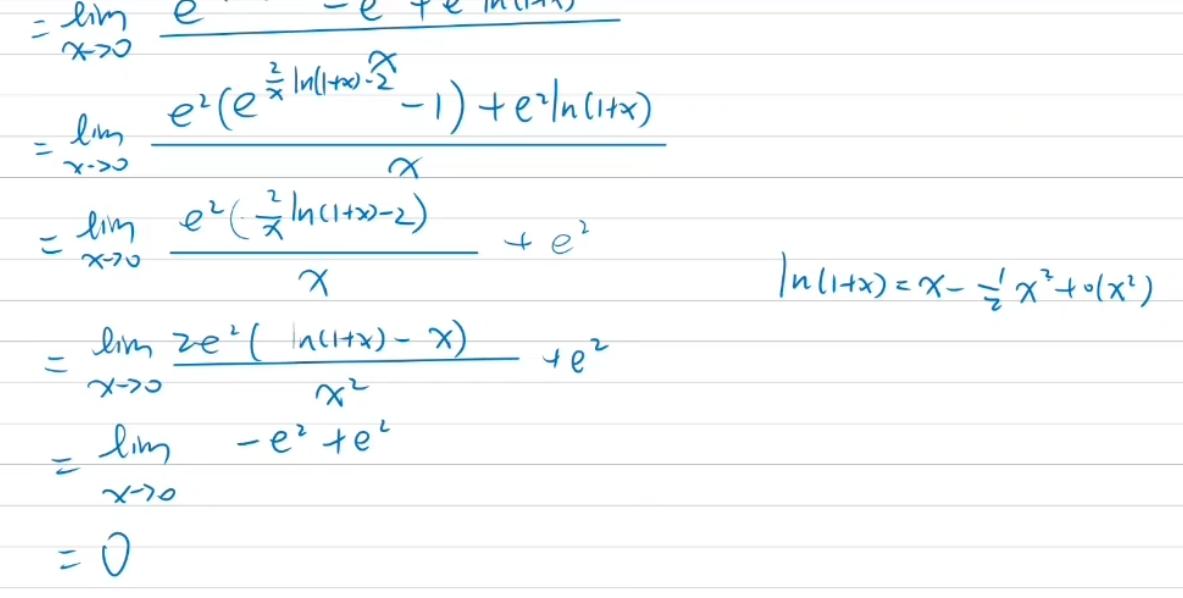 = lim x->0 e - e + e ln(1+x)
= lim x->0 e²(e^(2/x ln(1+x)-2) -1) + e²ln(1+x) / x
= lim x->0 e²(2/x ln(1+x)-2) / x + e²
ln(1+x) = x - 1/2 x² + o(x²)
= lim x->0 2e²( ln(1+x) - x) / x² + e²
= lim x->0 -e² + e²
= 0